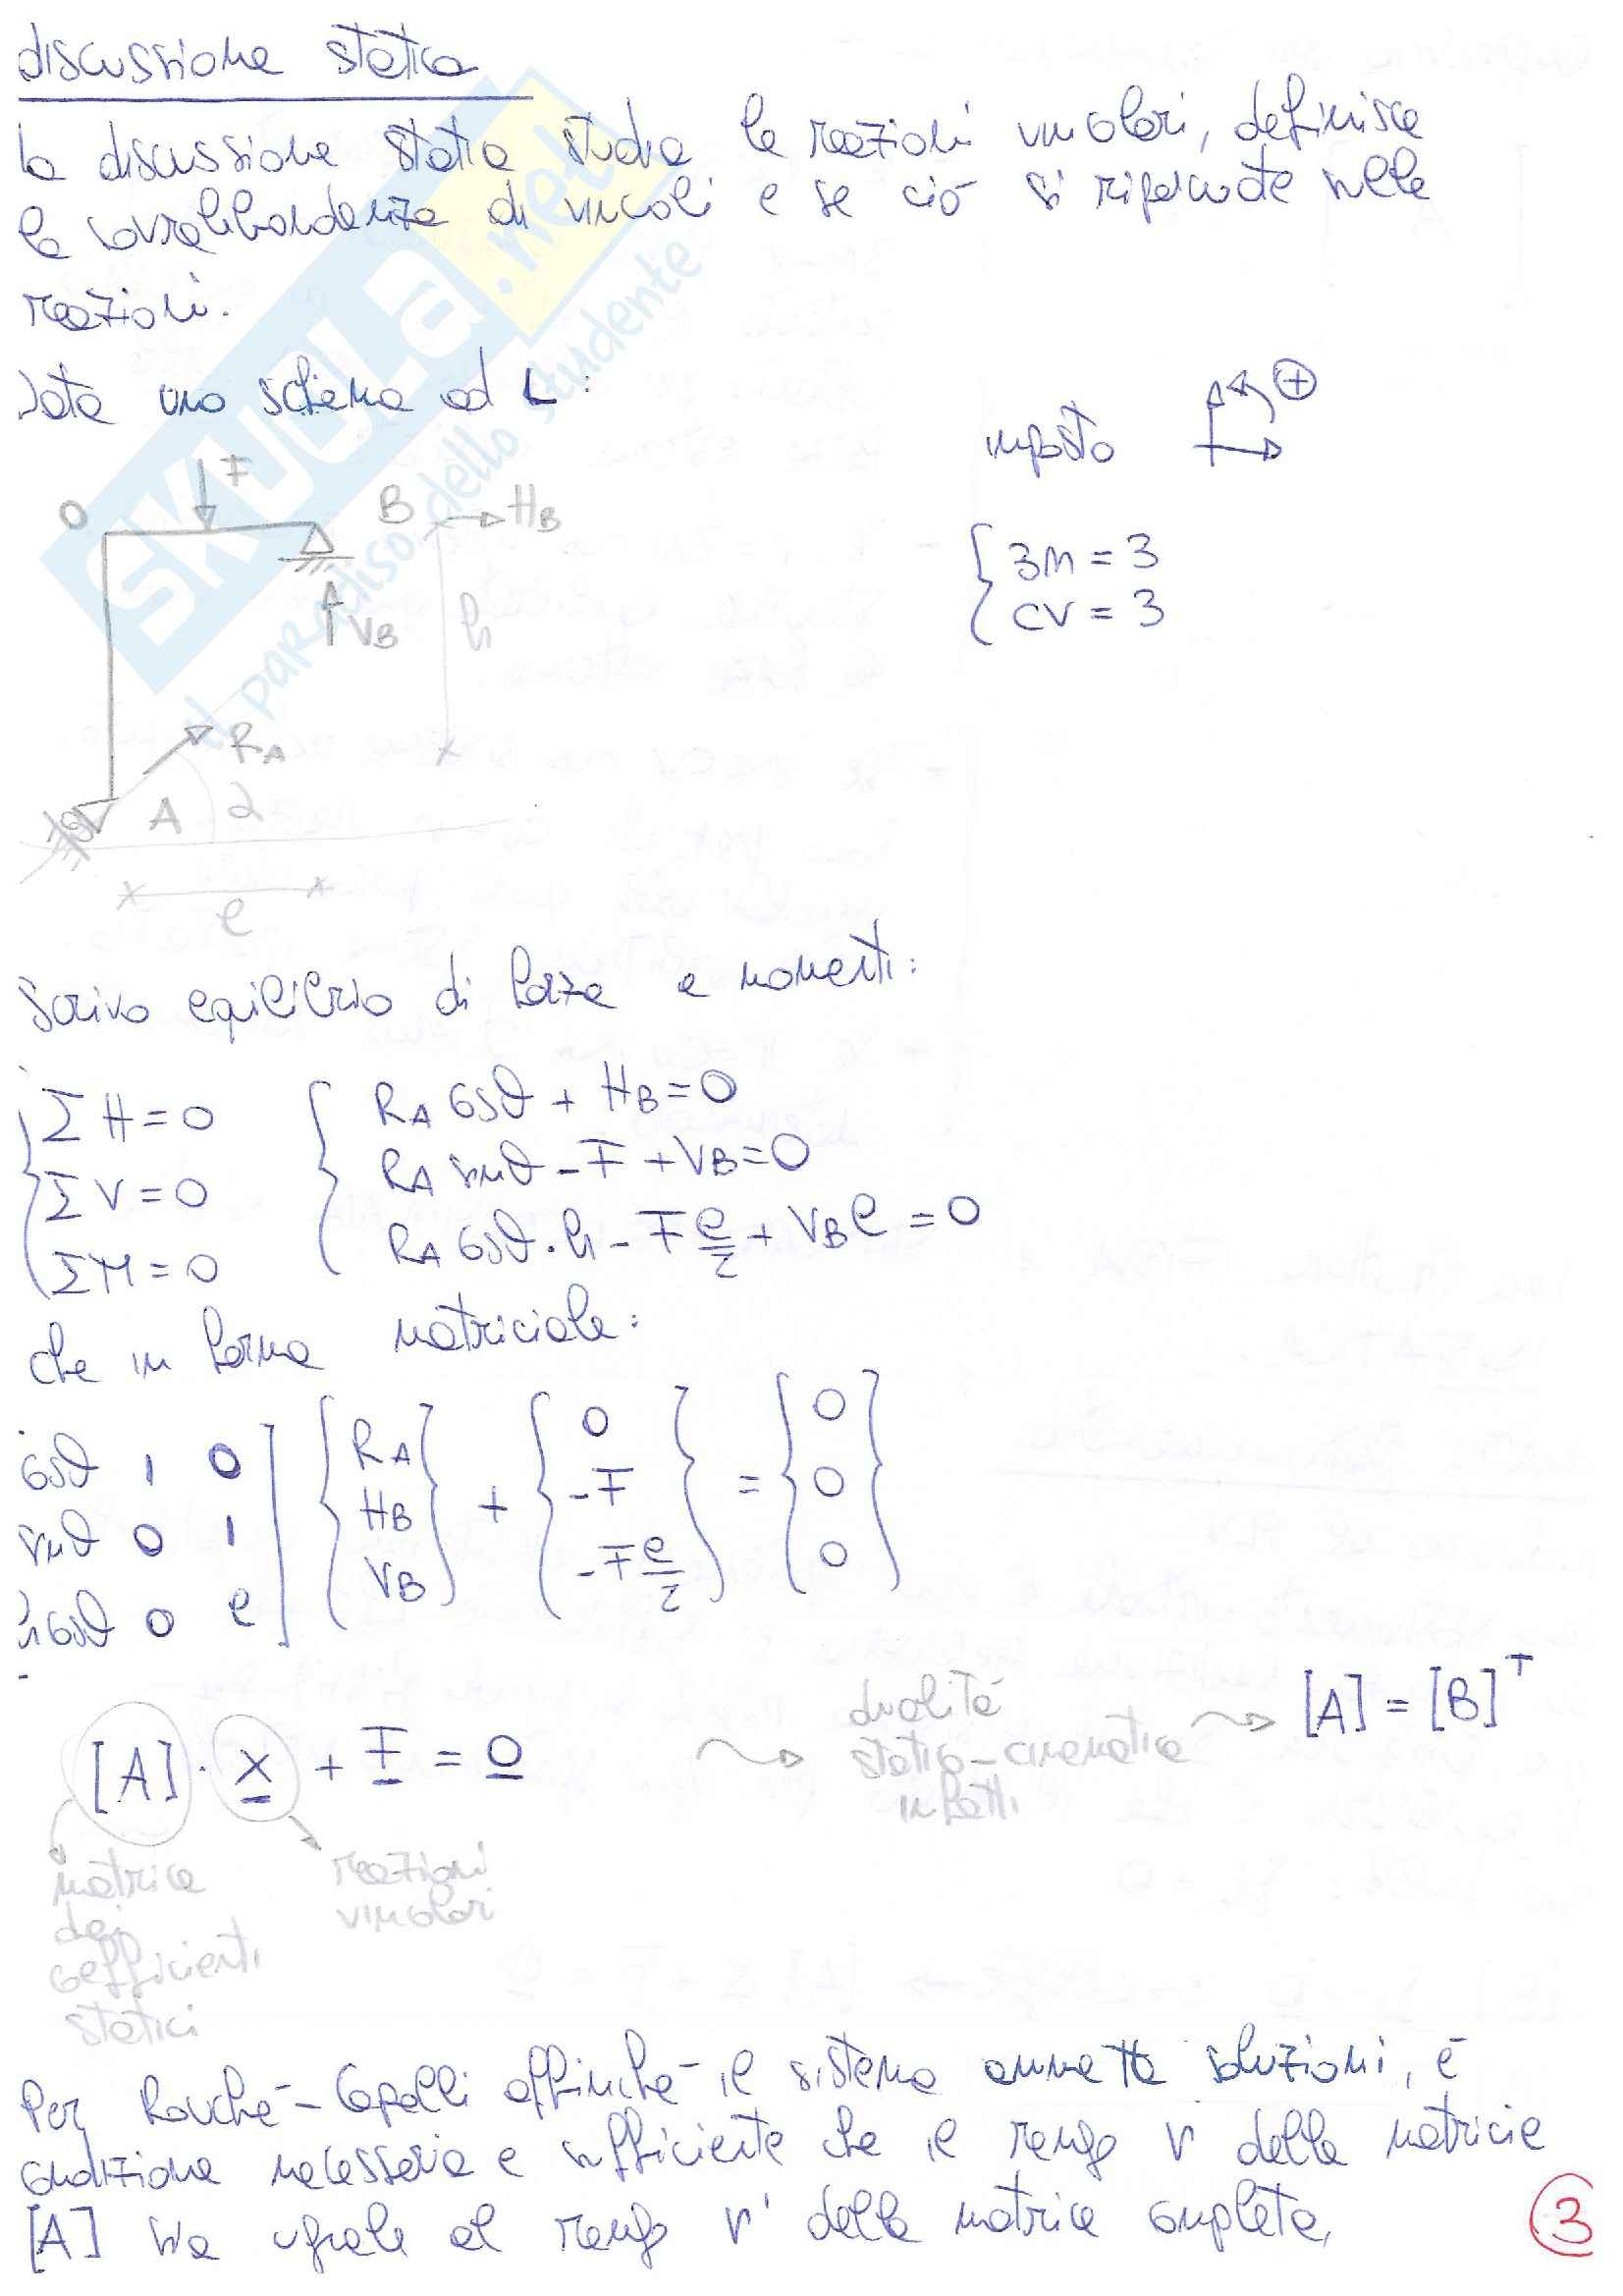 discussione statica
la discussione statica studia le reazioni vincolari, definisce
la sovrabbondanza di vincoli e se ciò si ripercuote sulle
reazioni.
Data uno schema ad L:
imposto
+
F
O
B
HB
3n = 3
CV = 3
VB
h
RA
A
α
l
scrivo equilibrio di forze e momenti:
ΣH = 0
RA cosϑ + HB = 0
ΣV = 0
RA sinϑ - F + VB = 0
ΣM = 0
RA cosϑ · h - F l/2 + VB l = 0
che in forma matriciale:
cosϑ 1 0 ] { RA } + { 0 } = { 0 }
sinϑ 0 1 ] { HB } + { -F } = { 0 }
h cosϑ 0 l ] { VB } + { -F l/2 } = { 0 }
[A] · x + F = 0
dualità
statico-cinematica
infatti
[A] = [B]^T
matrice
dei
coefficienti
statici
reazioni
vincolari
Per Rouché-Capelli affinché il sistema ammetta soluzioni, è
condizione necessaria e sufficiente che il rango r della matricie
[A] sia uguale al rango r' della matrice completa,
3
SKUOLA.net
il paradiso dello studente